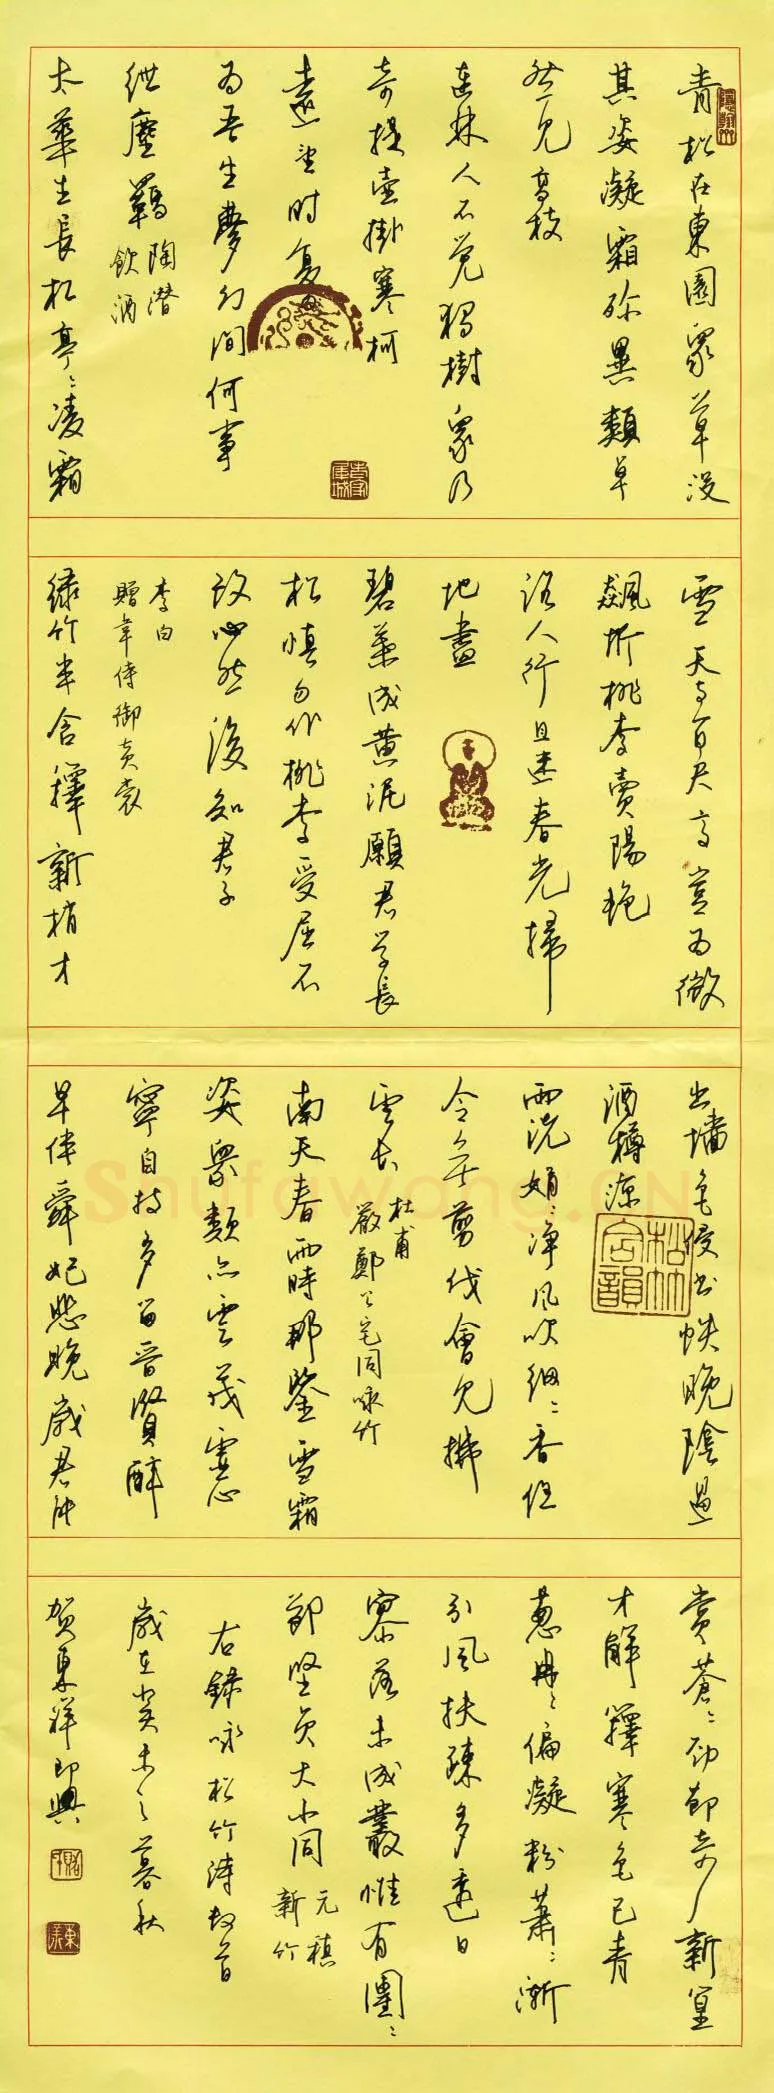 青松在東園眾草沒
其姿凝霜殄異類卓
然見高枝
連林人不覺獨樹眾乃
奇提壺掛寒柯
遠望時復為
為吾生夢幻間何事
紲塵羈
陶潛
飲酒
太華生長松亭々凌霜
雪天與百尺高豈為微
飆折桃李賣陽艷
路人行且迷春光掃
地盡
碧葉成黃泥願君學長
松慎勿作桃李受屈不
改心然後知君子
李白
贈韋侍御黃裳
綠竹半含籜新梢才
出墻色侵書帙晚陰過
酒樽涼
雨洗娟々淨風吹細々香但
令無剪伐會見拂
雲長
杜甫
嚴鄭公宅同咏竹
南天春雨時那鑒雪霜
姿眾類亦雲茂虛心
寧自持多留晉賢醉
早伴舜妃悲晚歲君能
賞蒼々勁節奇 新篁
才解籜寒色已青
蔥冉々偏凝粉蕭々漸
引風扶疎多透日
寥落未成叢惟有團々
節堅貞大小同
元稹
新竹
右錄咏松竹詩數首
歲在癸未之暮秋
賀東祥即興
Shufawang.CN